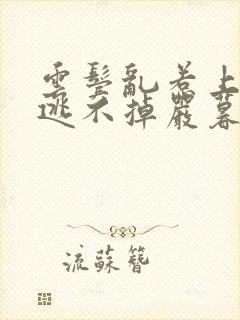 雲鬢亂若上
逃不掉嚴暮
流蘇簪